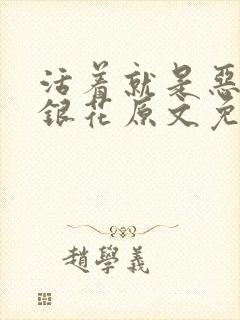 活着就是恶
银花原文免
趙學義